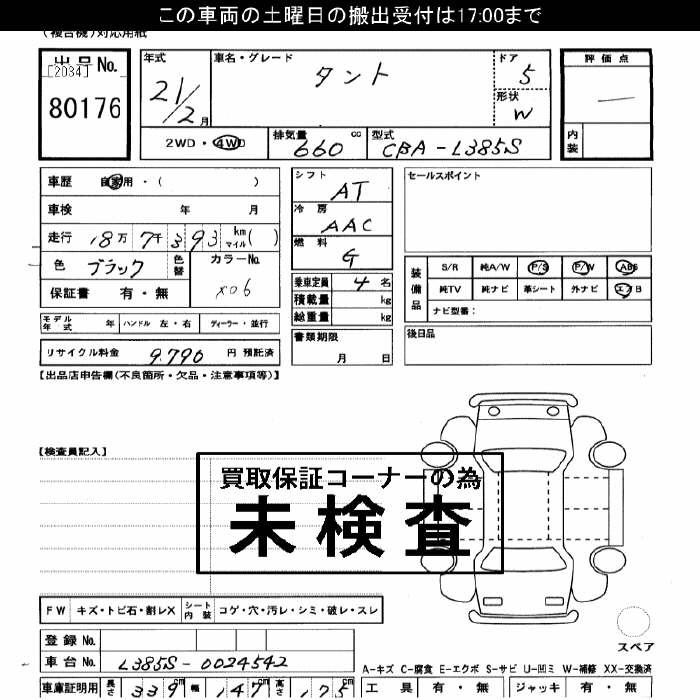 この車両の土曜日の搬出受付は17:00まで
(複合機)対応用紙
出品No. [2034] 80176
年式 21/2月
車名・グレード タント
ドア 5
形状 W
評価点 —
内装
2WD・4WD
排気量 660 cc
型式 CBA-L385S
車歴 自家用・( )
車検 年 月
走行 18万7千393 km マイル( )
色 ブラック 色替 カラーNo. X06
保証書 有・無
シフト AT
冷房 AAC
燃料 G
乗車定員 4名
積載量 kg
総重量 kg
セールスポイント
装備品 S/R 純A/W P/S P/W ABS
純TV 純ナビ 革シート 外ナビ エアB
ナビ型番:
モデル年式 年 ハンドル 左・右 ディーラー・並行
書類期限 月 日
後日品
リサイクル料金 9,790 円 預託済
【出品店申告欄(不良箇所・欠品・注意事項等)】
【検査員記入】
買取保証コーナーの為
未検査
FW キズ・トビ石・割レX シート内装 コゲ・穴・汚レ・シミ・破レ・スレ
スペア
登録No.
車台No. L385S-0024542
A-キズ C-腐食 E-エクボ S-サビ U-凹ミ W-補修 XX-交換済
車庫証明用 長さ 339cm 幅 147cm 高さ 175cm
工具 有・無 ジャッキ 有・無